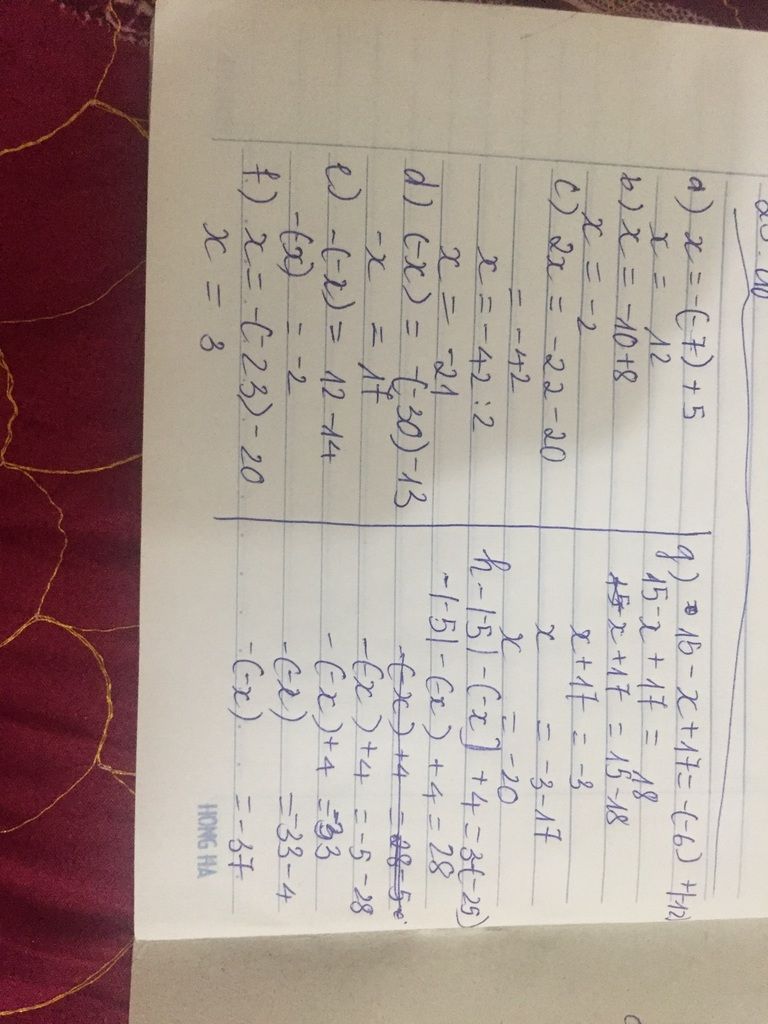 a) x = -(-7) + 5
x = 12
b) x = -10+8
x = -2
c) 2x = -22-20
= -42
x = -42 : 2
x = -21
d) (-x) = -(-30)-13
-x = 17
e) -(-x) = 12-14
-(x) = -2
f) x = -(-23)-20
x = 3
g) 15 - x + 17 = -(-6) + |-12|
15 - x + 17 = 18
x + 17 = 15-18
x + 17 = -3
x = -3-17
x = -20
h - |-5| - (-x) + 4 = 3-(-25)
-|-5| - (-x) + 4 = 28
-(-x)+4 = 28-5
-(x)+4 = -5-28
-(-x)+4 = -33
-(-x) = -33-4
-(-x) = -37
HONG HA